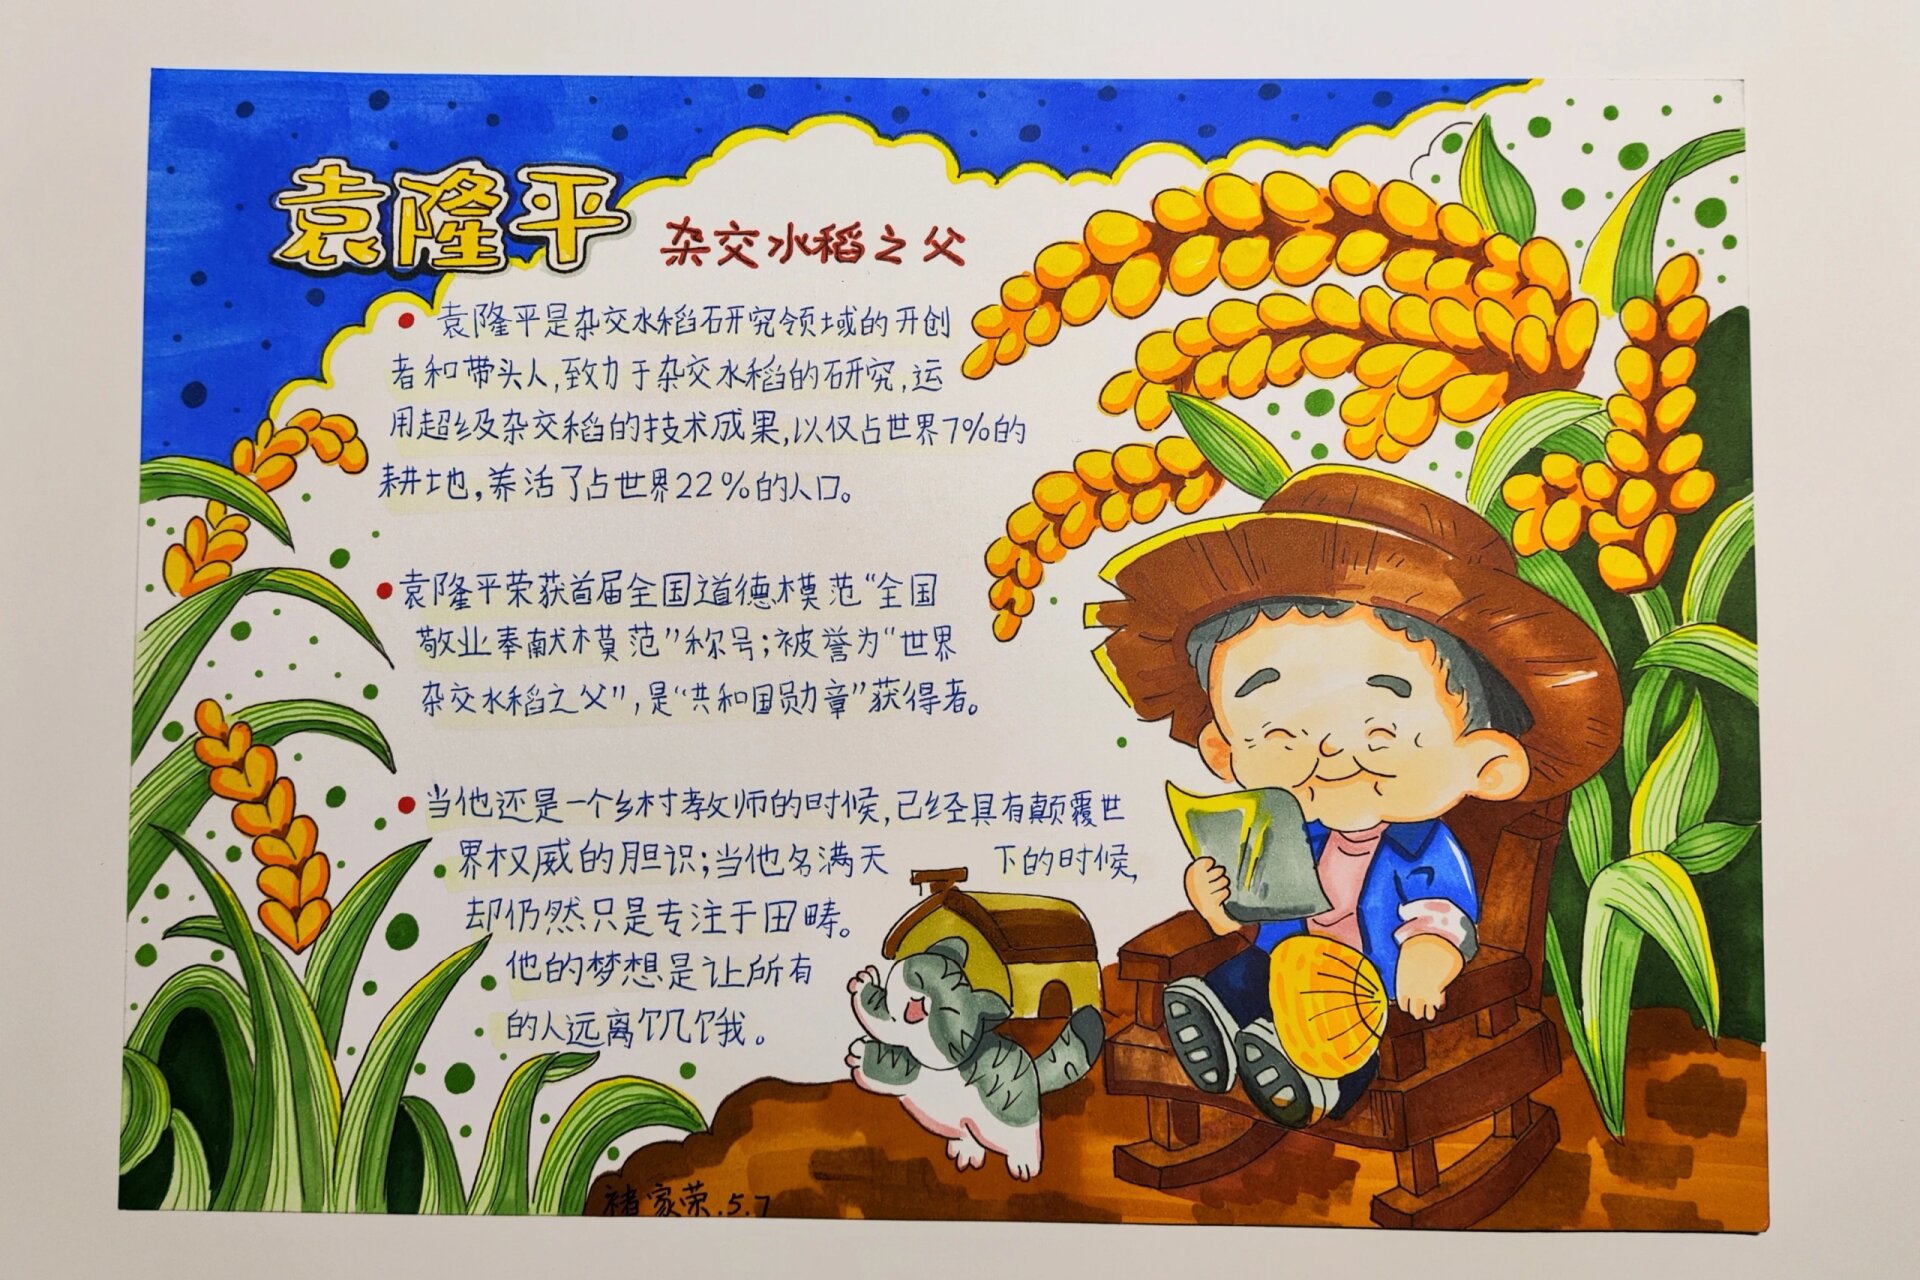 袁隆平
杂交水稻之父
袁隆平是杂交水稻研究领域的开创
者和带头人,致力于杂交水稻的研究,运
用超级杂交稻的技术成果,以仅占世界7%的
耕地,养活了占世界22%的人口。
袁隆平荣获首届全国道德模范“全国
敬业奉献模范”称号;被誉为“世界
杂交水稻之父”,是“共和国勋章”获得者。
当他还是一个乡村教师的时候,已经具有颠覆世
界权威的胆识;当他名满天 下的时候,
却仍然只是专注于田畴。
他的梦想是让所有
的人远离饥饿。
褚家荣.5.7